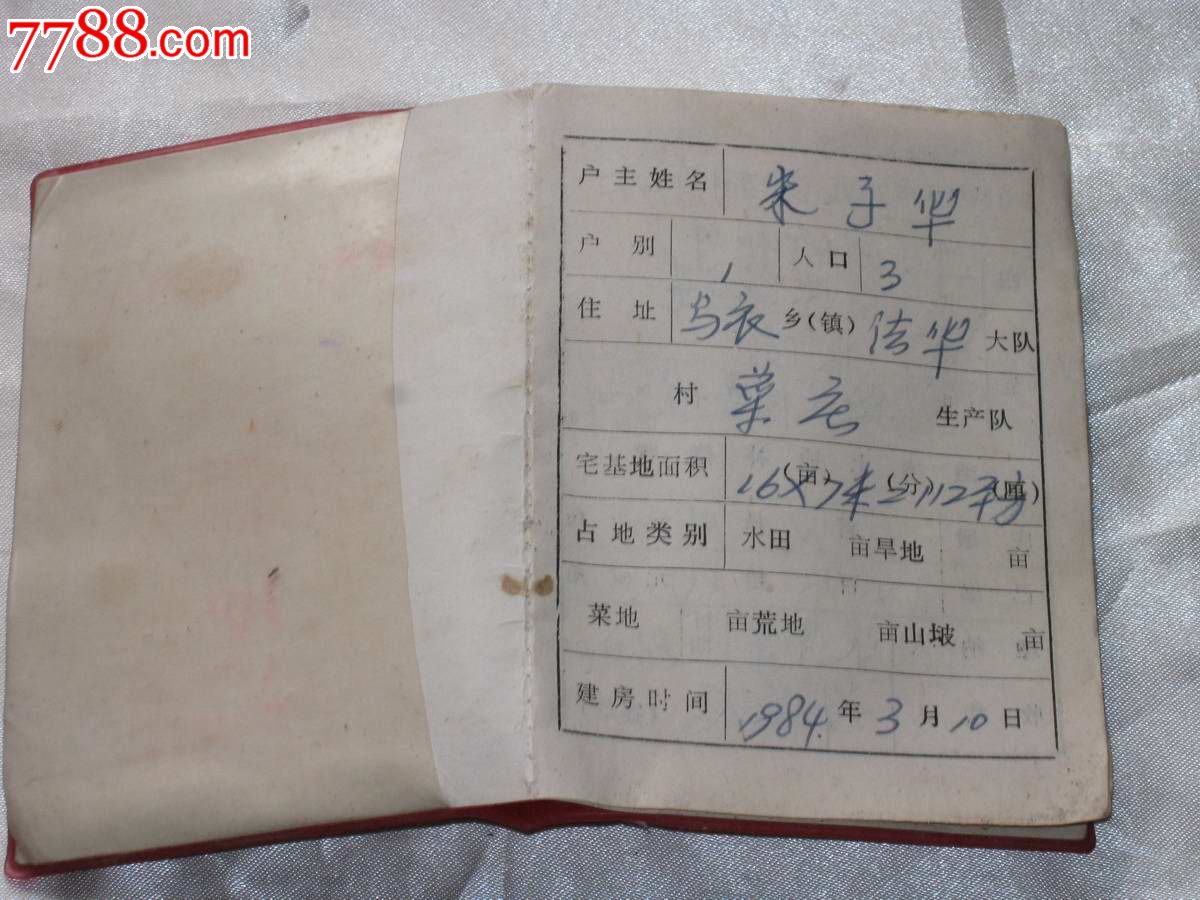 7788.com
户主姓名 朱子华
户别 1 人口 3
住址 乌衣 乡(镜) 法华 大队
村 菜庄 生产队
宅基地面积 16(亩)×7米=(分)112平方(厘)
占地类别 水田 亩旱地 亩
菜地 亩荒地 亩山坡 亩
建房时间 1984.年3月10日